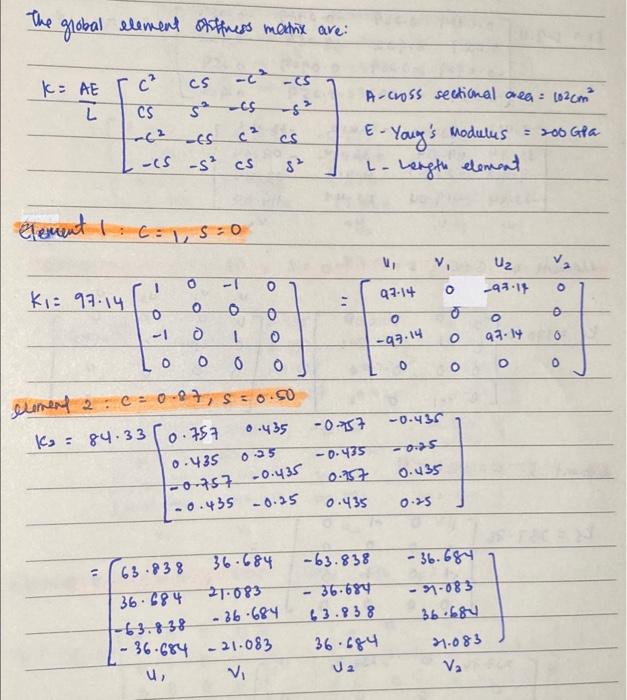 The global element stiffness matrix are:
K = AE/L [ C² CS -C² -CS
CS S² -CS -S²
-C² -CS C² CS
-CS -S² CS S² ]
A - cross sectional area = 102cm²
E - Young's Modulus = 200 GPa
L - Length element
Element 1 : C = 1, S = 0
K1 = 97.14 [ 1 0 -1 0
0 0 0 0
-1 0 1 0
0 0 0 0 ]
U1 V1 U2 V2
= [ 97.14 0 -97.14 0
0 0 0 0
-97.14 0 97.14 0
0 0 0 0 ]
element 2 : C = 0.87, S = 0.50
K2 = 84.33 [ 0.757 0.435 -0.757 -0.435
0.435 0.25 -0.435 -0.25
-0.757 -0.435 0.757 0.435
-0.435 -0.25 0.435 0.25 ]
= [ 63.838 36.684 -63.838 -36.684
36.684 21.083 -36.684 -21.083
-63.838 -36.684 63.838 36.684
-36.684 -21.083 36.684 21.083 ]
U1 V1 U2 V2